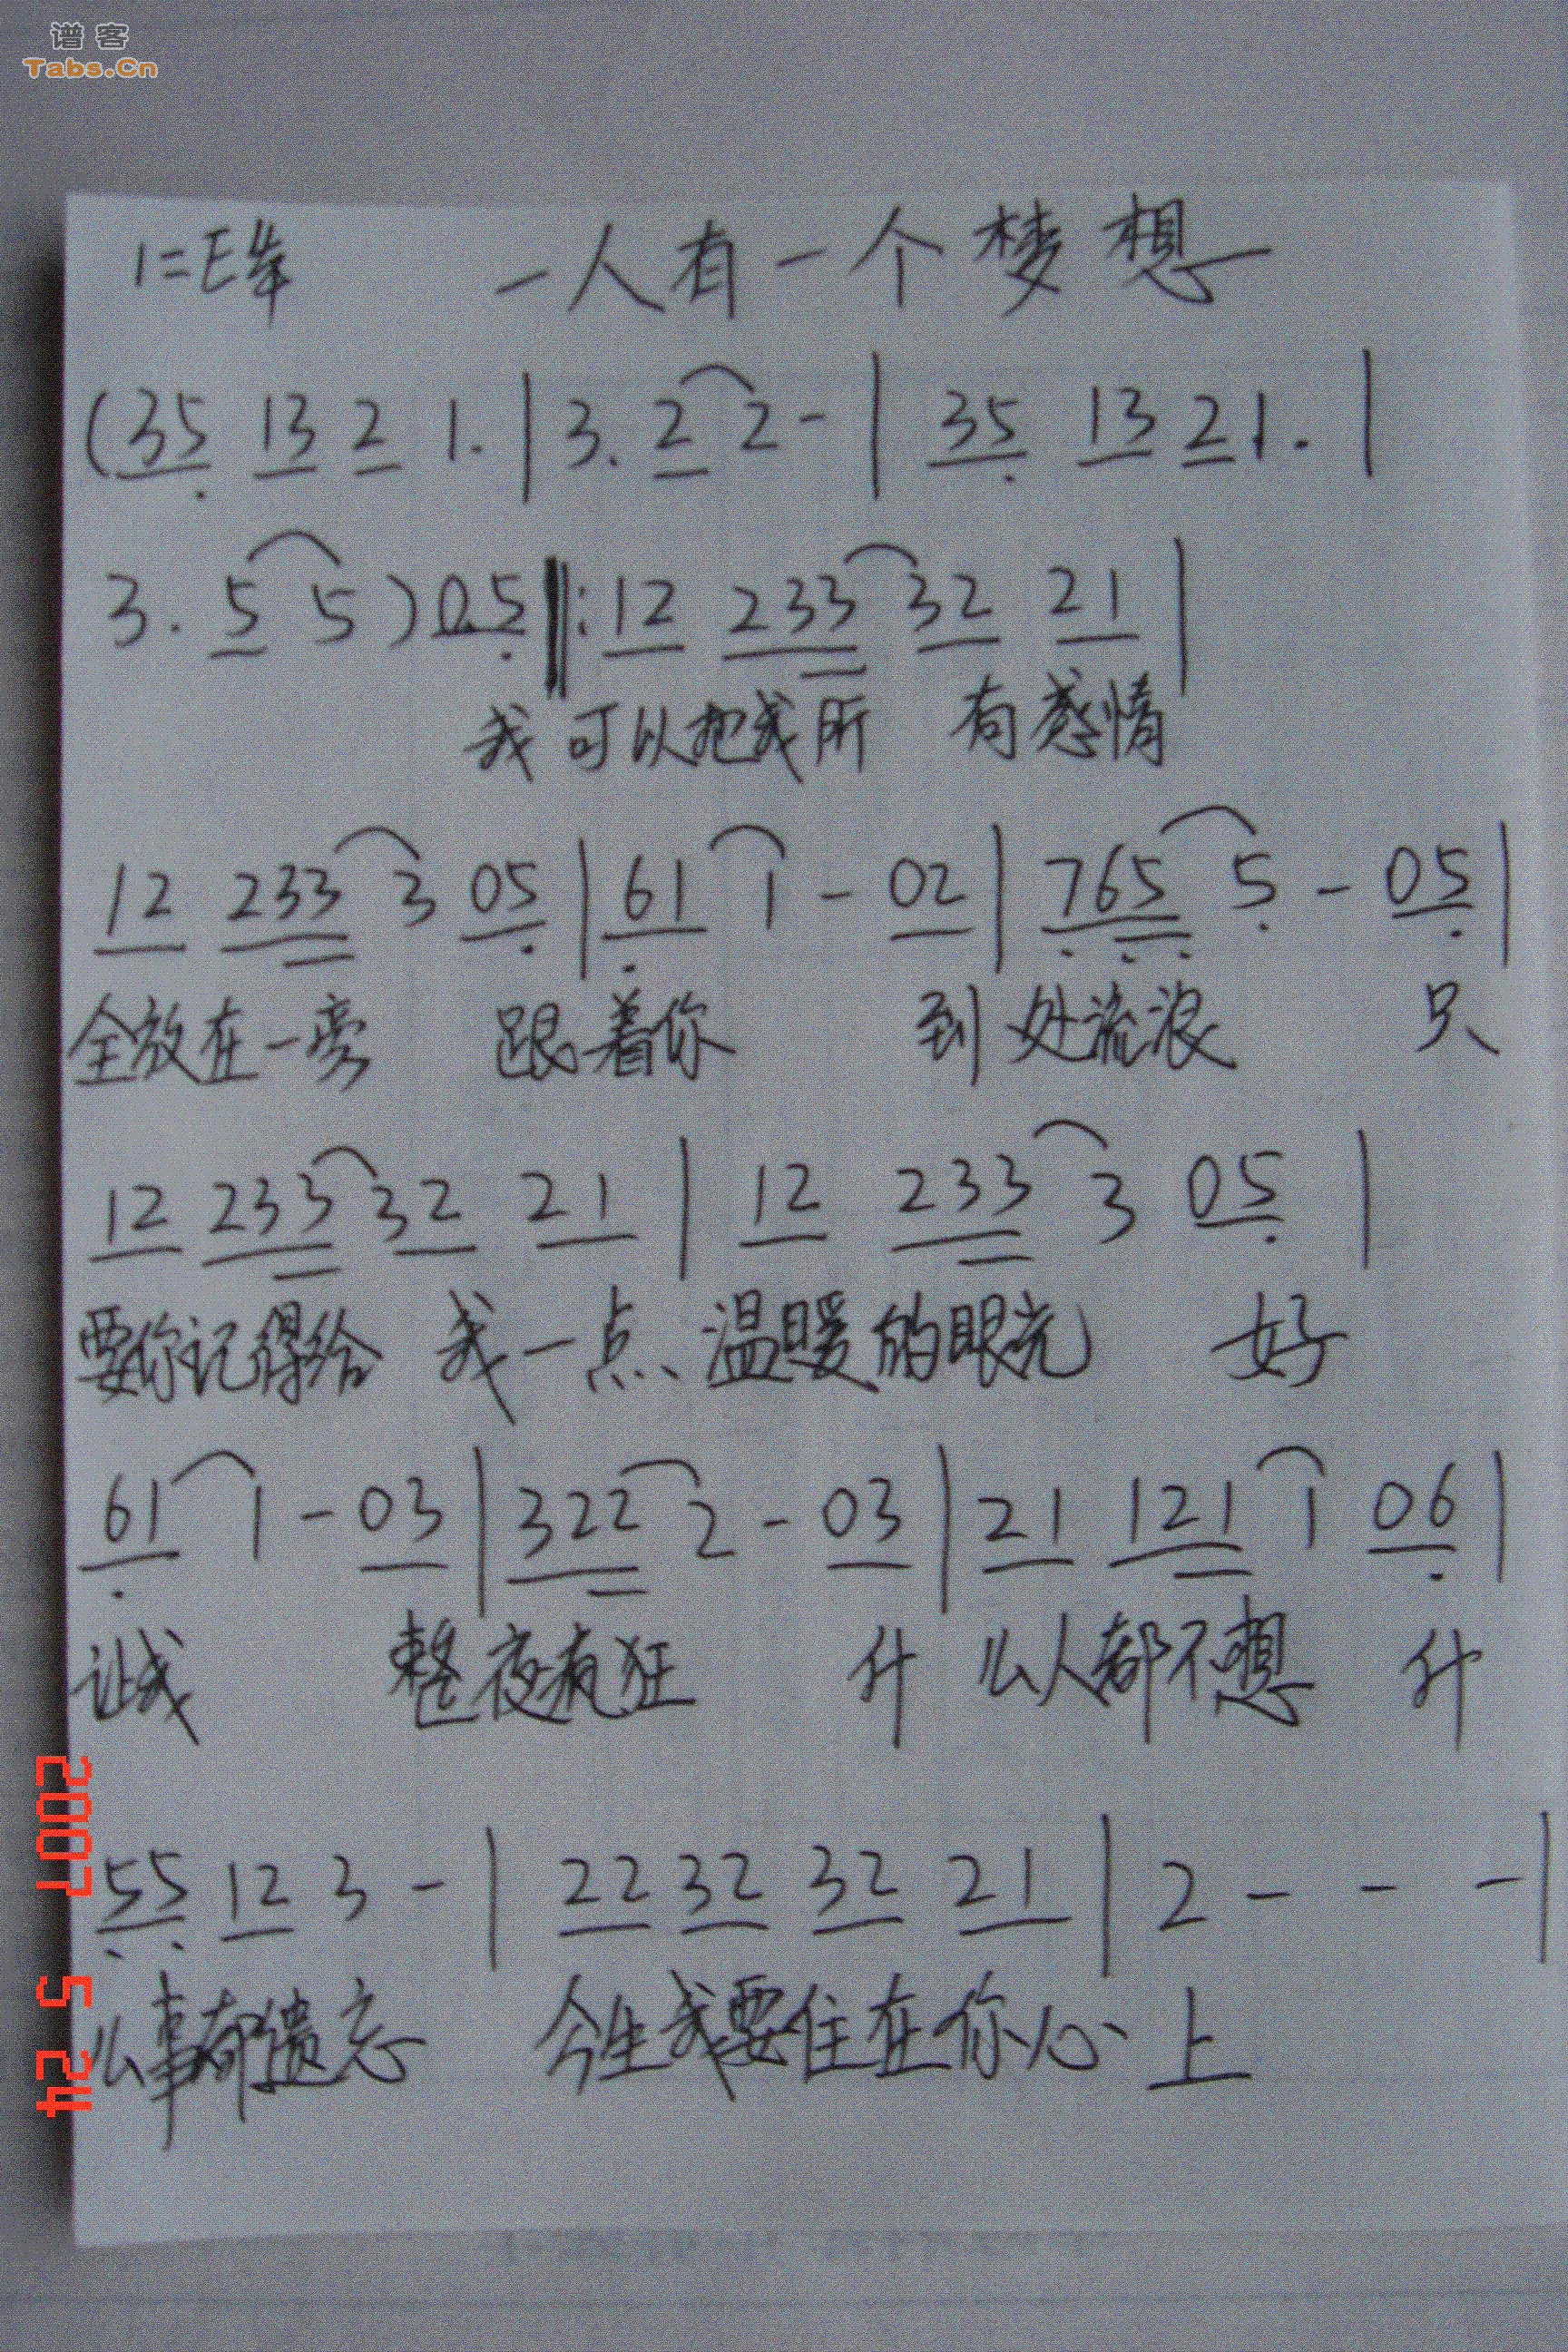 谱客
Tabs.Cn
1=E 4/4 一人有一个梦想
(35 13 2 1. | 3. 2 2 - | 35 13 2 1. |
3. 5 5 ) 05 ‖: 12 233 32 21 |
我 可以把我所 有感情
12 233 3 05 | 61 1 - 02 | 765 5 - 05 |
全放在一旁 跟着你 到处流浪 只
12 233 32 21 | 12 233 3 05 |
要你记得给 我一点 温暖的眼光 好
61 1 - 03 | 322 2 - 03 | 21 121 1 06 |
让我 整夜疯狂 什 么人都不想 什
55 12 3 - | 22 32 32 21 | 2 - - - |
么事都遗忘 今生我要住在你心上
2007 5 24